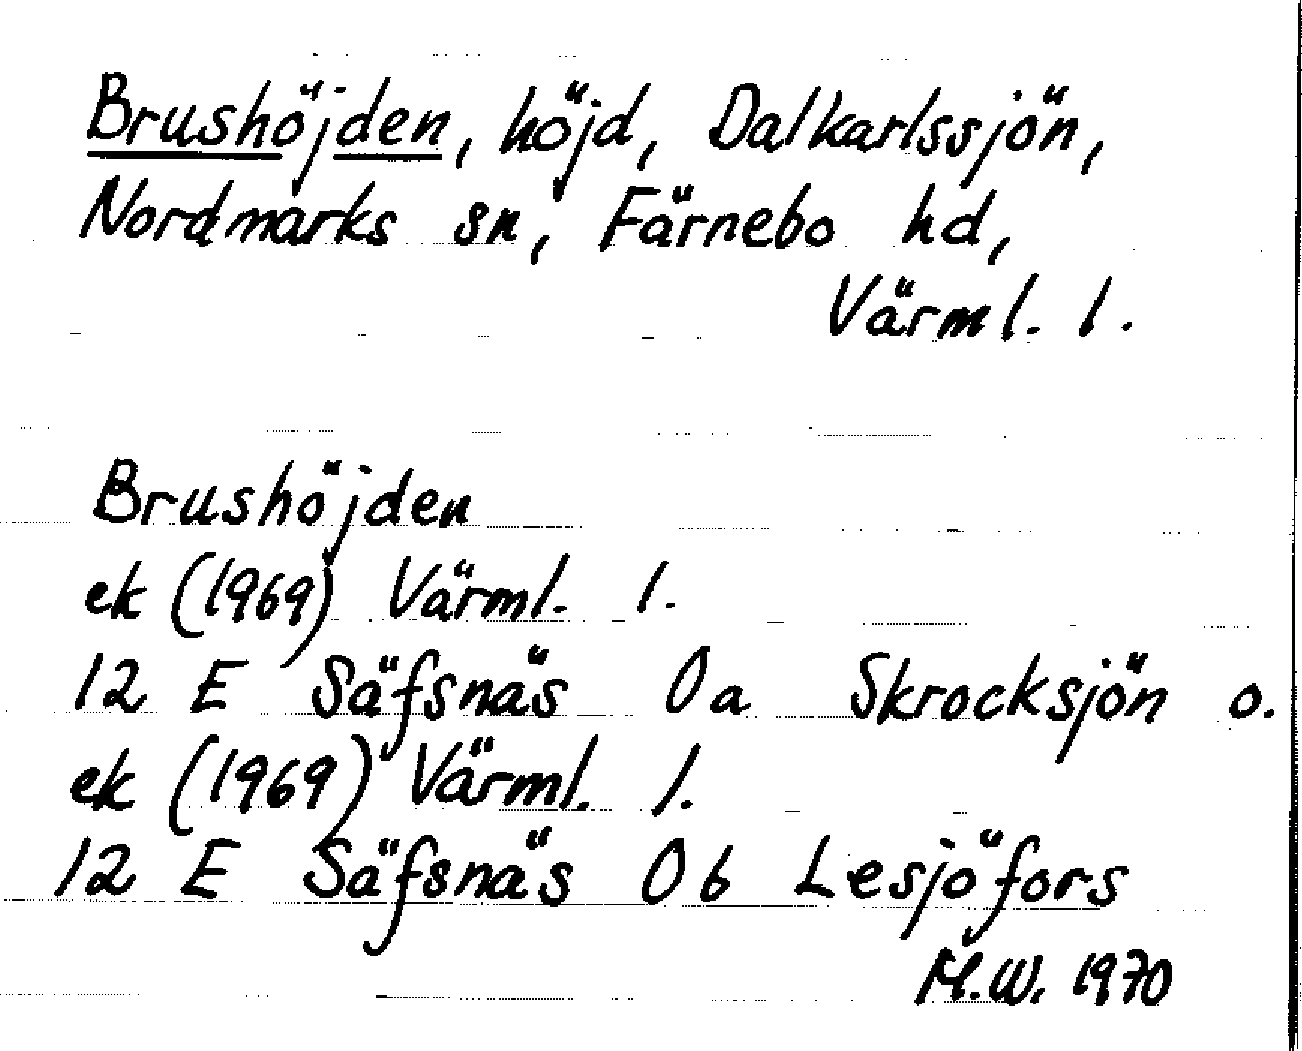 Brushöjden, höjd, Dalkarlssjön,
Nordmarks sn, Färnebo hd,
Värml. l.
Brushöjden
ek (1969) Värml. l.
12 E Säfsnäs 0a Skrocksjön o.
ek (1969) Värml. l.
12 E Säfsnäs 0b Lesjöfors
M.W. 1970